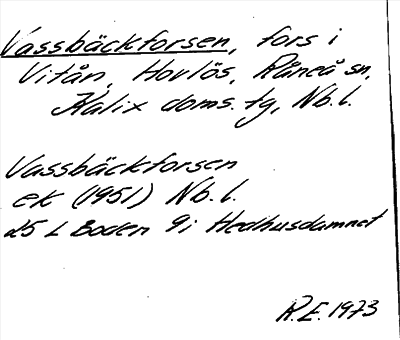 Vassbäckforsen, fors i
Vitån, Hovlös, Råneå sn,
Kalix doms. tg, Nb.l.
Vassbäckforsen
ek (1951) Nb.l.
25 L Boden 9i Hedhusdamnet
R.E. 1973